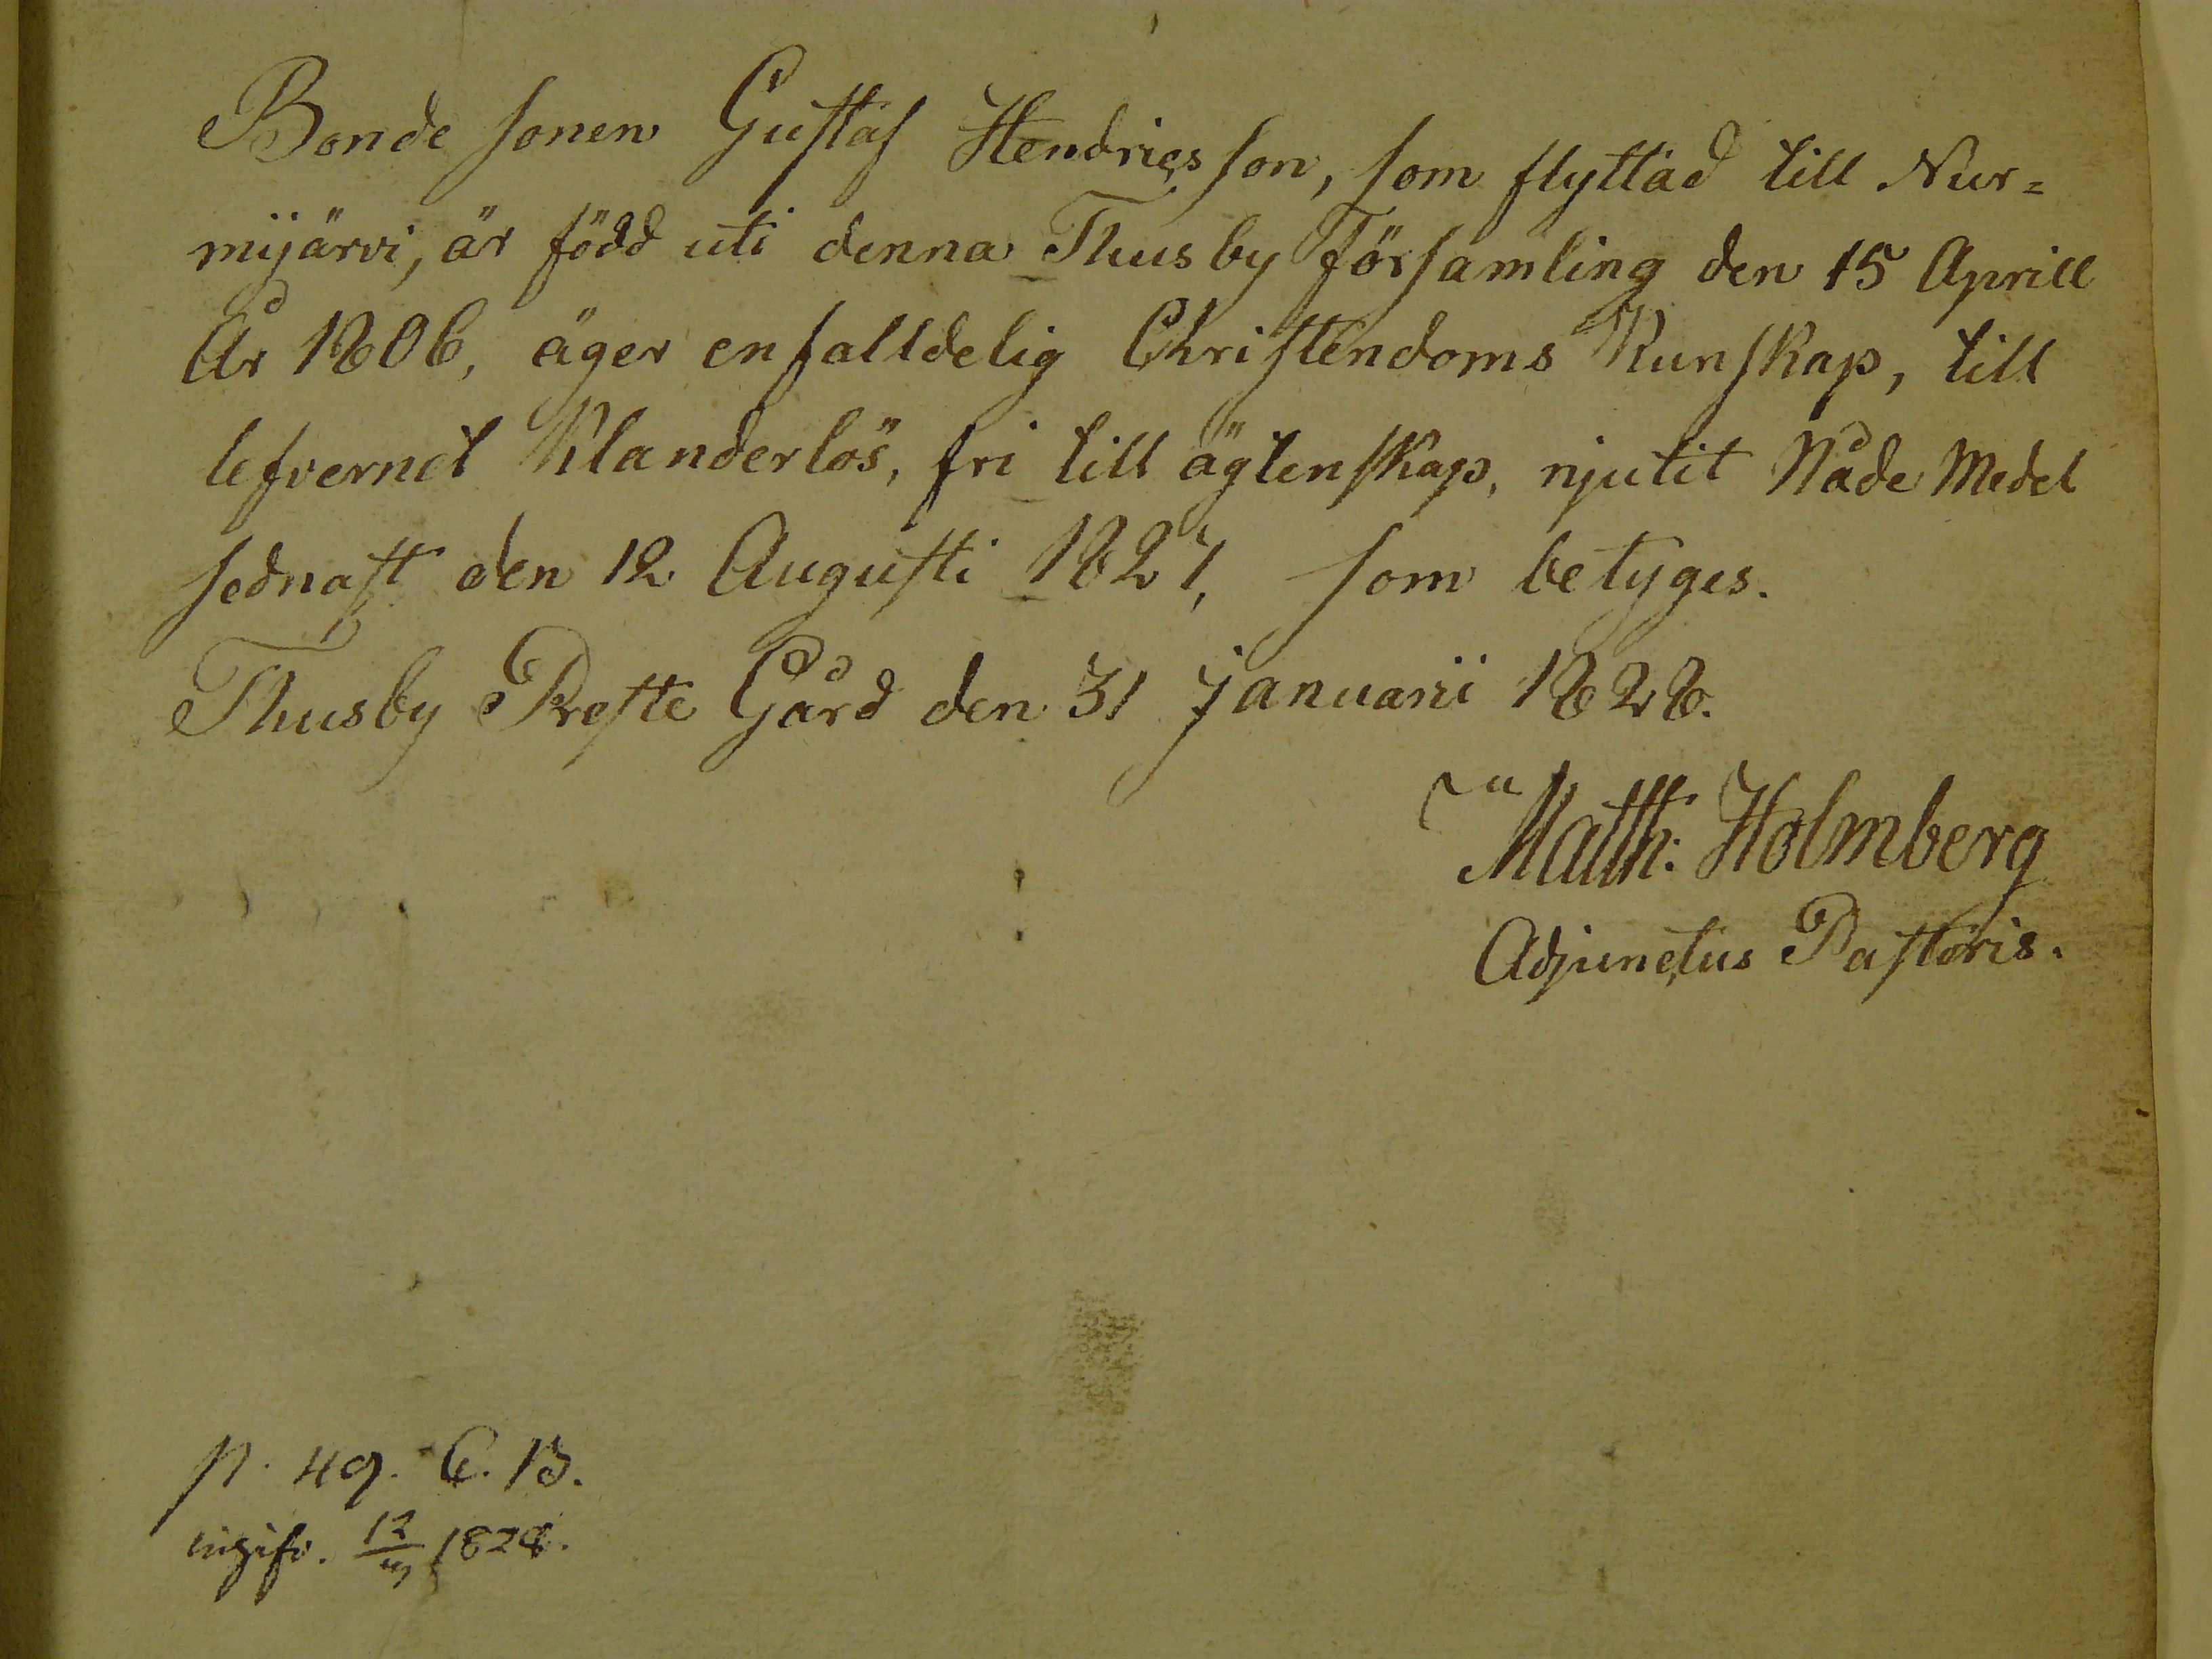 Bonde sonen Gustaf Hendricsson, som flyttad till Nur=
mijärvi, är född uti denna Thusby Församling den 15 Aprill
År 1806, äger enfalldelig Christendoms Kunskap, till
lefvernet Klanderlös, fri till ägtenskap, njutit Nåde Medel
sednast den 12 Augusti 1827, som betyges.
Thusby Preste Gård den 31 Januarii 1828.
Matth: Holmberg
Adjunctus Pastoris.
p. 49. C. B.
ingifv. 12/ 1828.